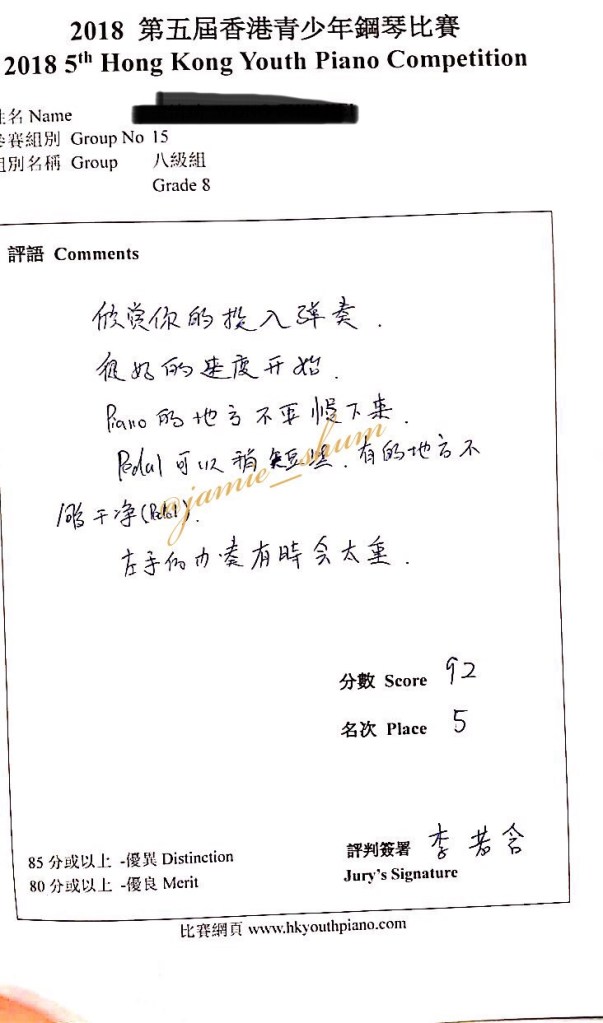 2018 第五屆香港青少年鋼琴比賽
2018 5th Hong Kong Youth Piano Competition
姓名 Name
參賽組別 Group No 15
組別名稱 Group 八級組
Grade 8
評語 Comments
欣赏你的投入弹奏.
很好的速度开始.
Piano 的地方不要慢下来.
Pedal 可以稍短些.有的地方不
够干净(Pedal).
@jamie_shum
左手的力奏有時会太重.
分數 Score 92
名次 Place 5
85 分或以上 -優異 Distinction
80 分或以上 -優良 Merit
評判簽署 李若含
Jury's Signature
比賽網頁 www.hkyouthpiano.com